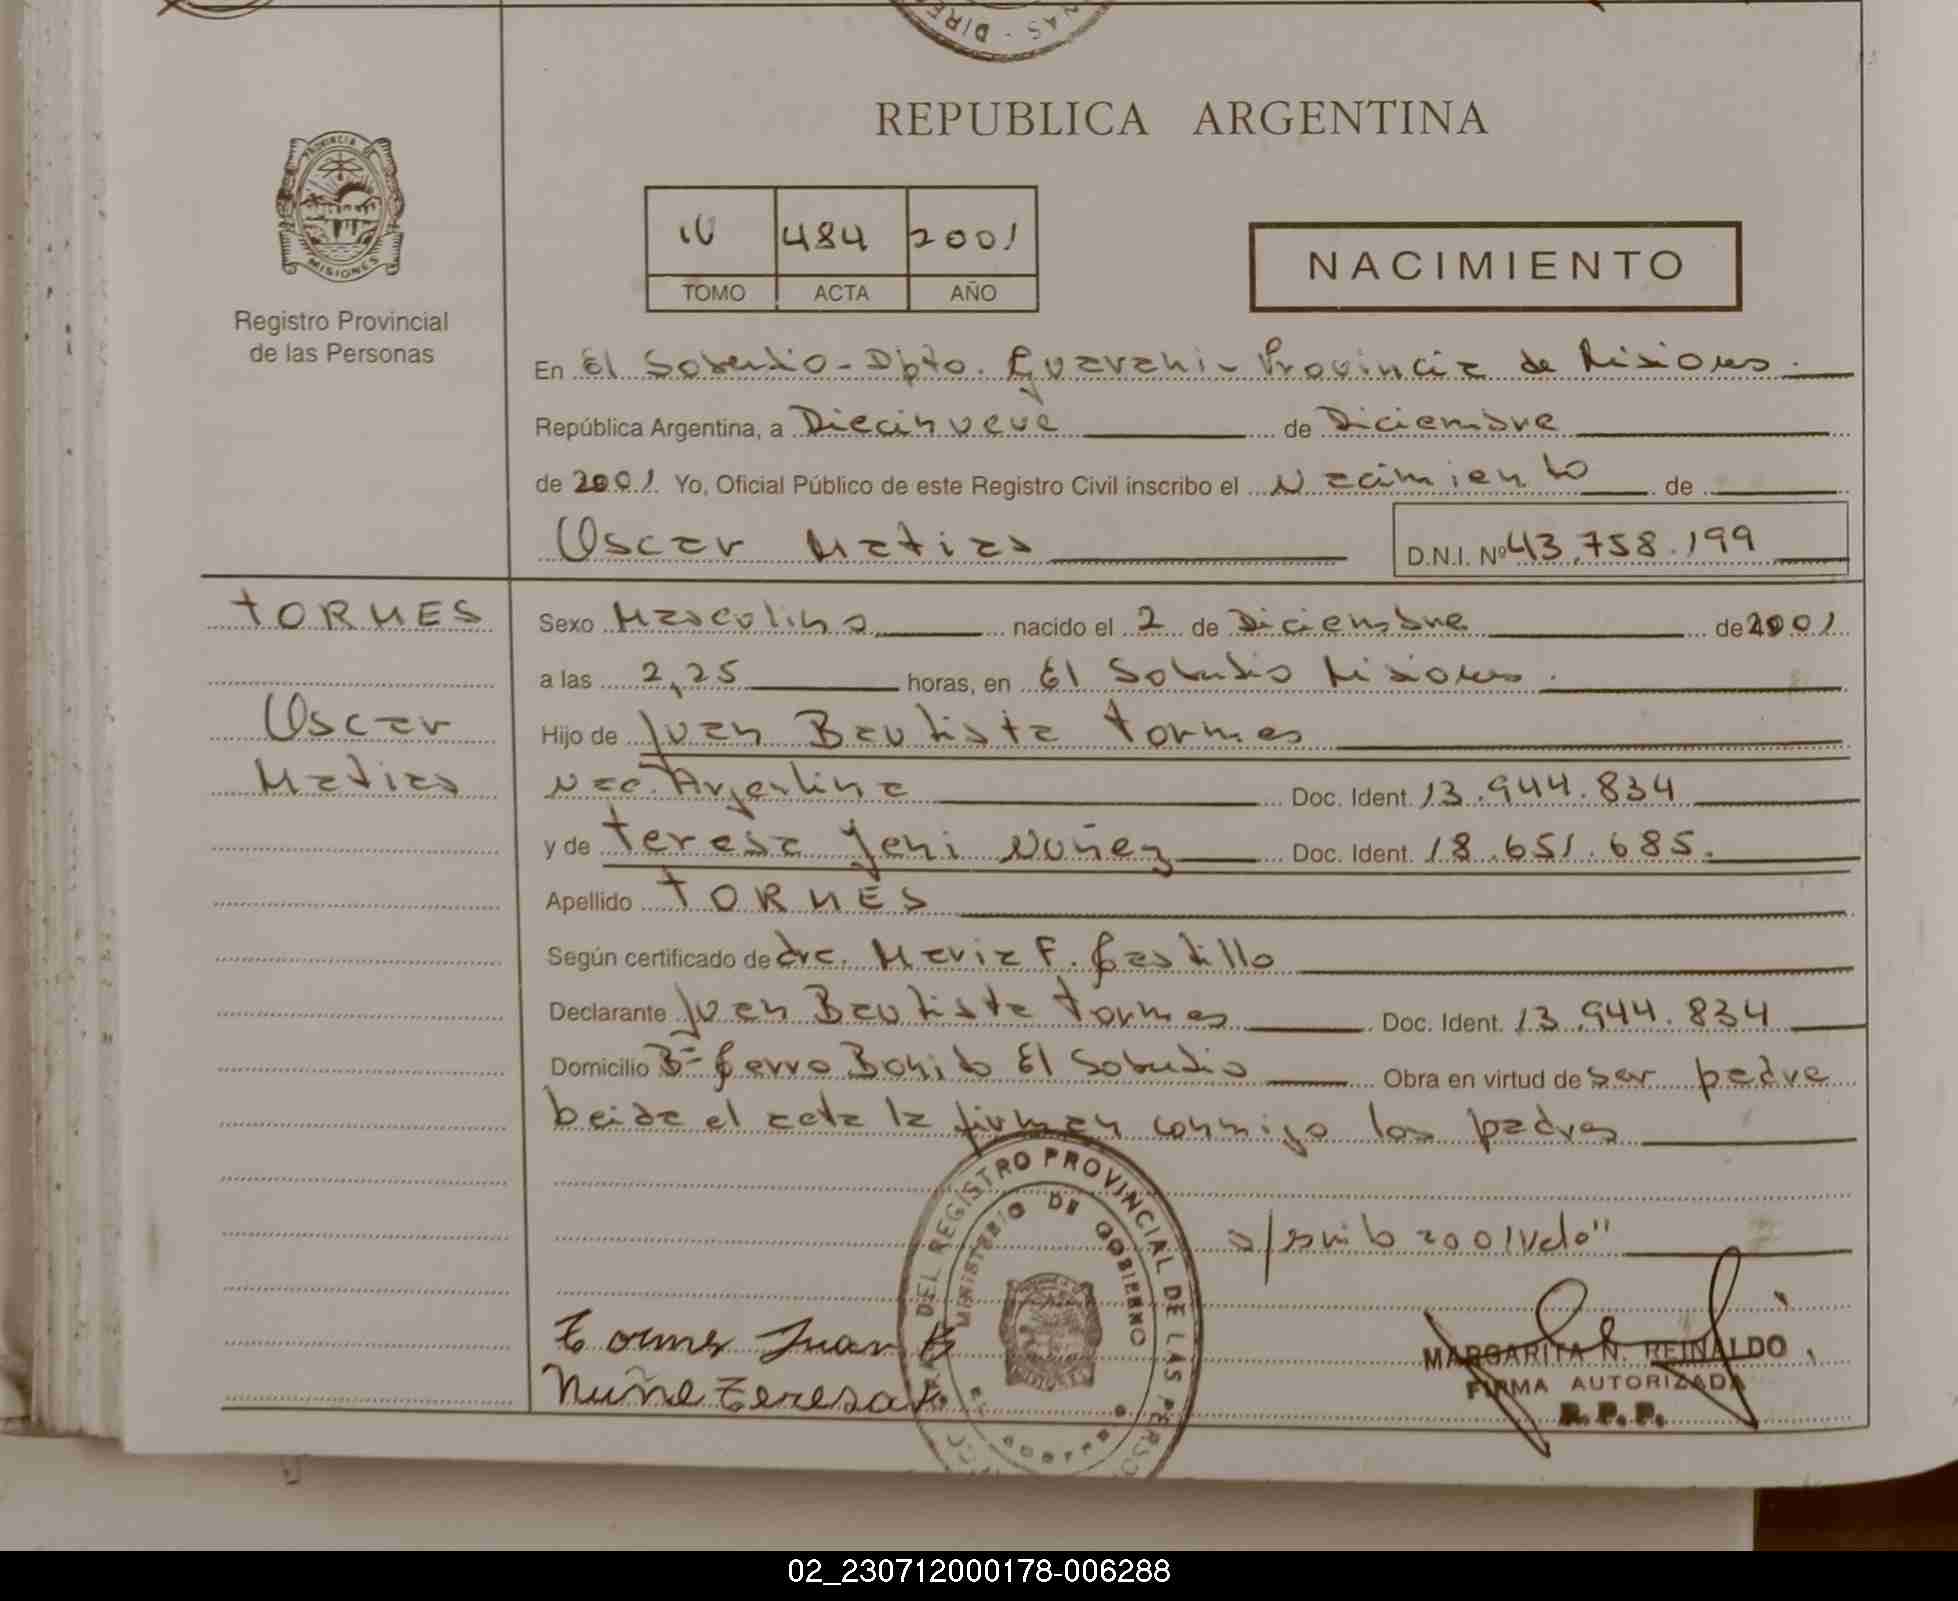 REPUBLICA ARGENTINA
PROVINCIA DE
MISIONES
Registro Provincial
de las Personas
IV 484 2001
TOMO ACTA AÑO
NACIMIENTO
En El Soberbio - Dpto. Guarani - Provincia de Misiones.
República Argentina, a Diecinueve de Diciembre
de 2001 Yo, Oficial Público de este Registro Civil inscribo el Nacimiento de
Oscar Matias D.N.I. Nº 43.758.199
TORMES
Oscar
Matias
Sexo Masculino nacido el 2 de Diciembre de 2001
a las 2,25 horas, en El Soberbio Misiones.
Hijo de Juan Bautista Tormes
Nac. Argentina Doc. Ident. 13.944.834
y de Teresa Yeni Nuñez Doc. Ident. 18.651.685.
Apellido TORMES
Según certificado de dra. Maria F. Castillo
Declarante Juan Bautista Tormes Doc. Ident. 13.944.834
Domicilio Bº Cerro Bonito El Soberbio Obra en virtud de ser padre
leida el acta la firman conmigo los padres
2001 Vale"
Tormes Juan B
Nuñe Teresa
DEL REGISTRO PROVINCIAL DE LAS PERSO
MINISTERIO DE GOBIERNO
MARGARITA N. REINALDO
FIRMA AUTORIZADA
R.P.P.
02_230712000178-006288